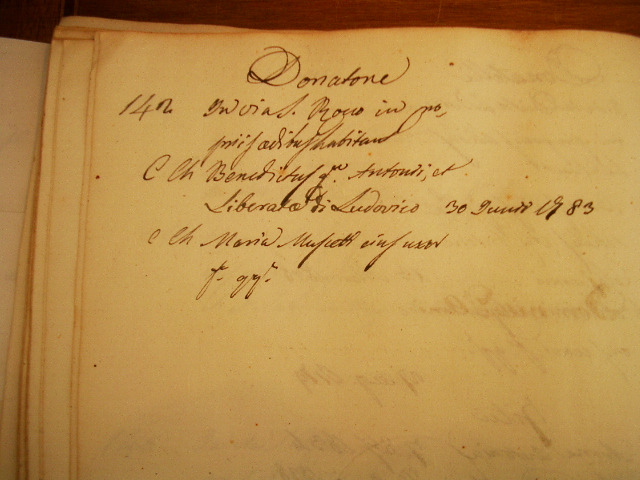 Donatone
142 In via S. Rocco in pro,
priis ædibus habitan
C Ch Benedictus qm Antonii, et
Liberatæ di Ludovico 30 Junii 1783
C Ch Maria ejus uxor